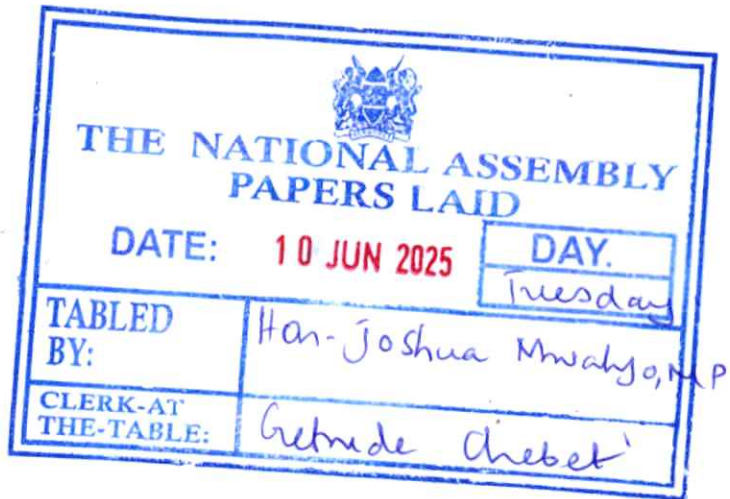 THE NATIONAL ASSEMBLY
PAPERS LAID
DATE: 10 JUN 2025 DAY.
Tuesday
TABLED
BY: Hon. Joshua MP
CLERK-AT
THE-TABLE: Getrude Chebet